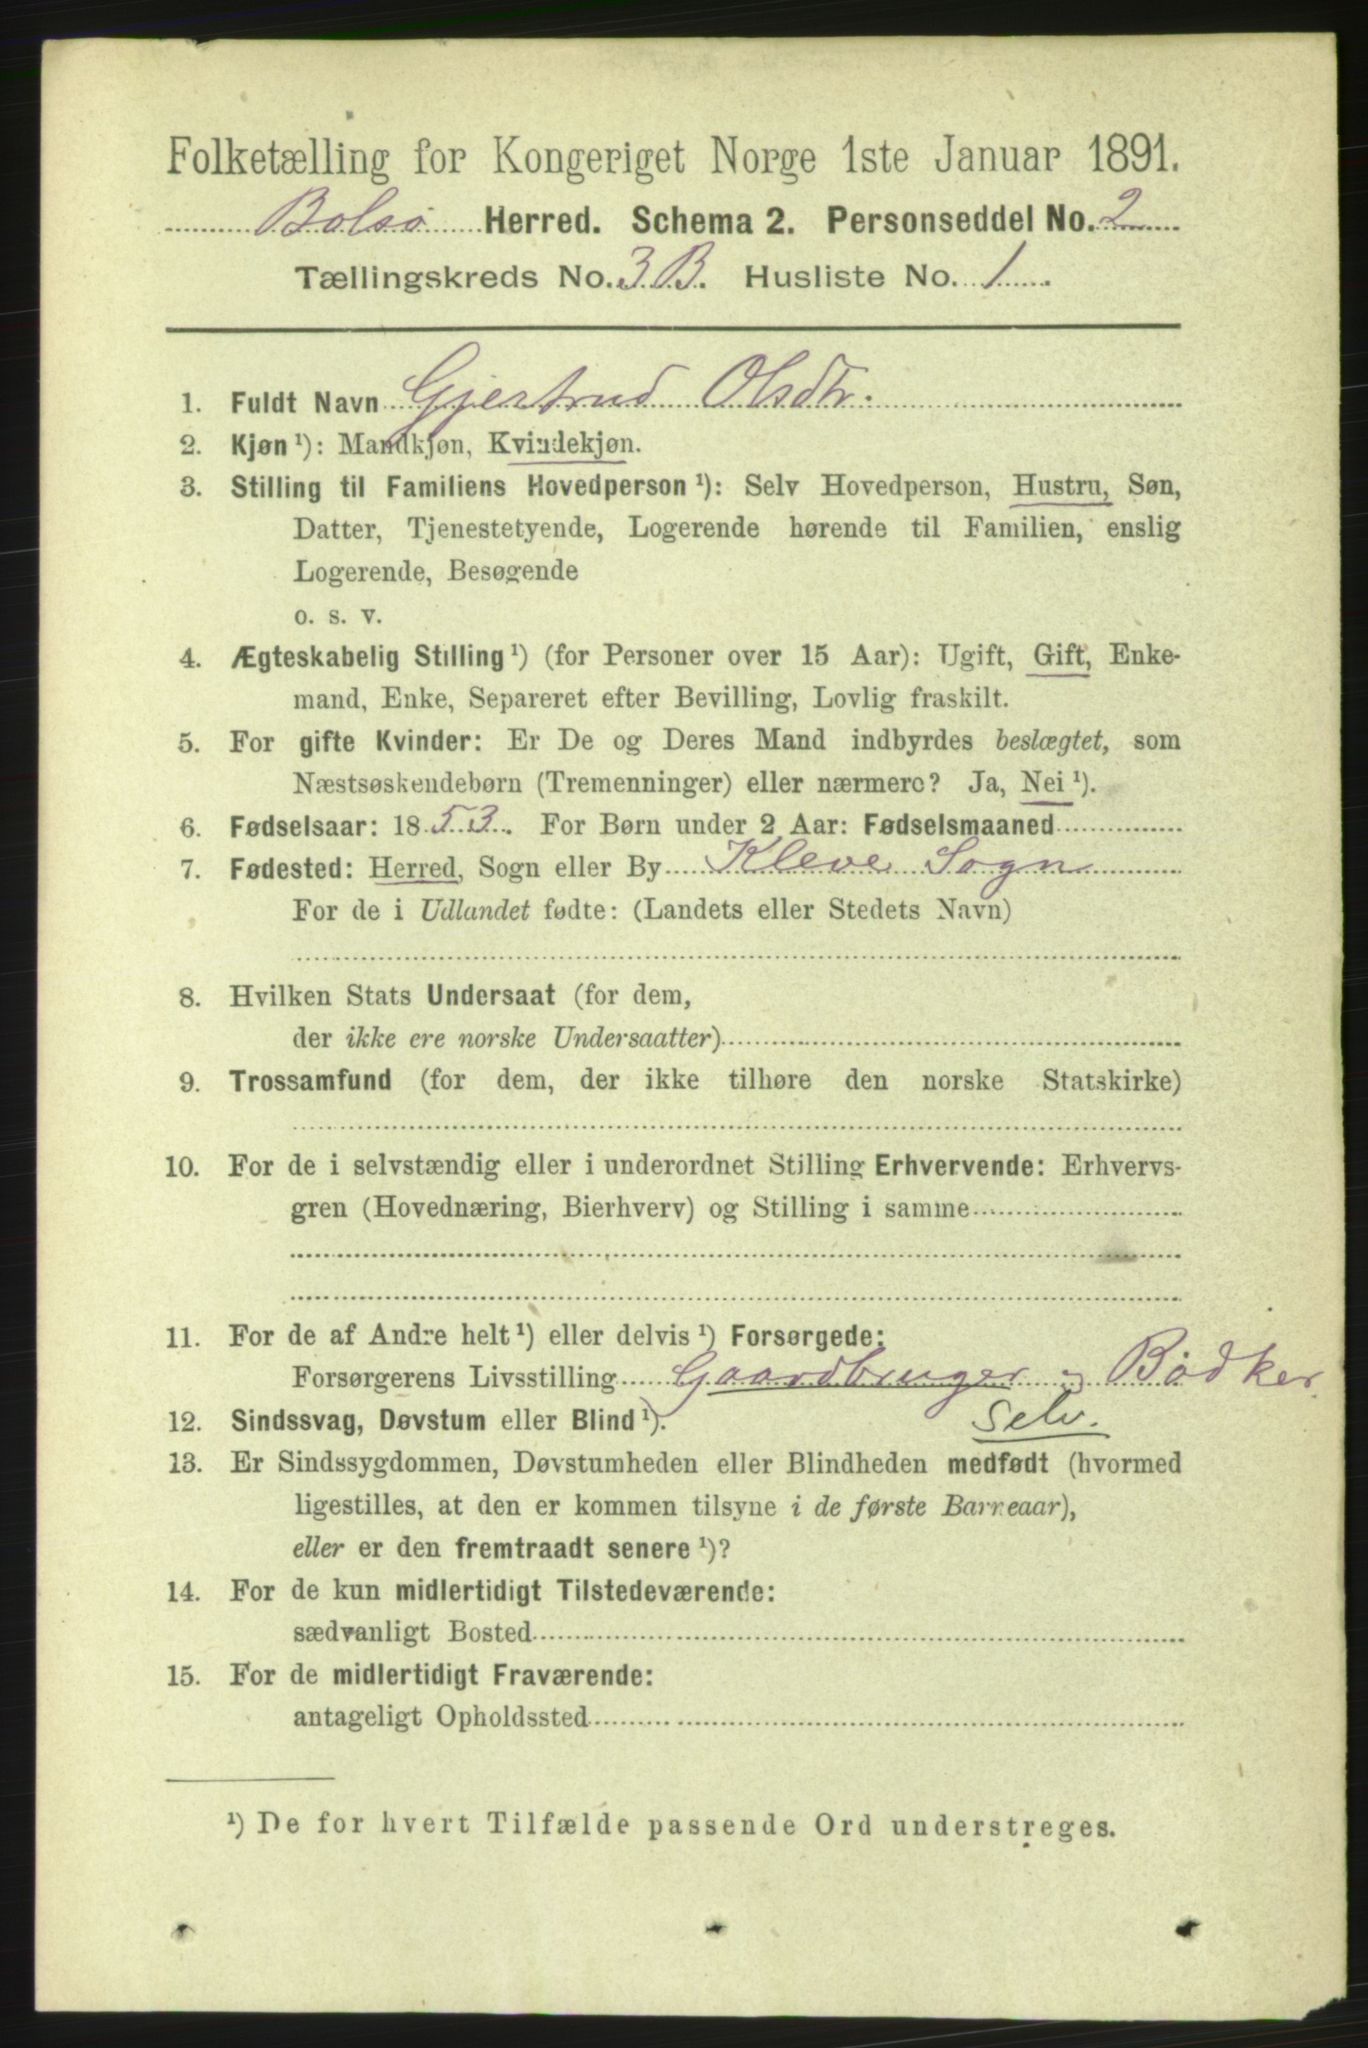 Folketælling for Kongeriget Norge 1ste Januar 1891.
Bolsø Herred. Schema 2. Personseddel No. 2
Tællingskreds No. 3 B. Husliste No. 1
1. Fuldt Navn Gjertrud Olsdtr.
2. Kjøn ¹): Mandkjøn, Kvindekjøn.
3. Stilling til Familiens Hovedperson ¹): Selv Hovedperson, Hustru, Søn,
Datter, Tjenestetyende, Logerende hørende til Familien, enslig
Logerende, Besøgende
o. s. v.
4. Ægteskabelig Stilling ¹) (for Personer over 15 Aar): Ugift, Gift, Enke-
mand, Enke, Separeret efter Bevilling, Lovlig fraskilt.
5. For gifte Kvinder: Er De og Deres Mand indbyrdes beslægtet, som
Næstsøskendebørn (Tremenninger) eller nærmere? Ja, Nei ¹).
6. Fødselsaar: 1853. For Børn under 2 Aar: Fødselsmaaned
7. Fødested: Herred, Sogn eller By Kleve Sogn
For de i Udlandet fødte: (Landets eller Stedets Navn)
8. Hvilken Stats Undersaat (for dem,
der ikke ere norske Undersaatter)
9. Trossamfund (for dem, der ikke tilhøre den norske Statskirke)
10. For de i selvstændig eller i underordnet Stilling Erhvervende: Erhvervs-
gren (Hovednæring, Bierhverv) og Stilling i samme
11. For de af Andre helt ¹) eller delvis ¹) Forsørgede:
Forsørgerens Livsstilling Gaardbruger og Bødker
12. Sindssvag, Døvstum eller Blind ¹). Selv.
13. Er Sindssygdommen, Døvstumheden eller Blindheden medfødt (hvormed
ligestilles, at den er kommen tilsyne i de første Barneaar),
eller er den fremtraadt senere ¹)?
14. For de kun midlertidigt Tilstedeværende:
sædvanligt Bosted
15. For de midlertidigt Fraværende:
antageligt Opholdssted
¹) De for hvert Tilfælde passende Ord understreges.